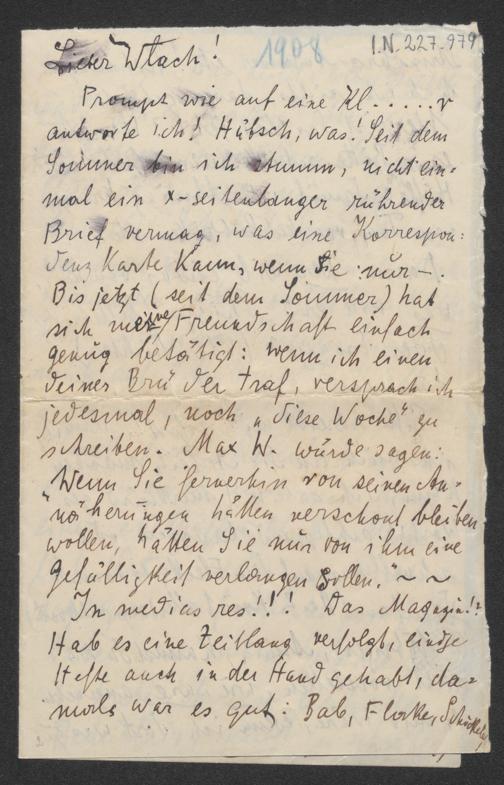 1908 I.N. 227.979
Lieber Wlach!
Prompt wie auf eine Kl.....r
antworte ich! Hübsch, was! Seit dem
Sommer bin ich stumm, nicht ein-
mal ein x-seitenlanger rührender
Brief vermag, was eine Korrespon-
denz Karte kann, wenn sie nur –.
Bis jetzt (seit dem Sommer) hat
sich meine Freundschaft einfach
genug betätigt: wenn ich einen
deiner Brüder traf, versprach ich
jedesmal, noch „diese Woche" zu
schreiben. Max W. würde sagen:
„Wenn Sie fernerhin von seinen An-
näherungen hätten verschont bleiben
wollen, hätten Sie nur von ihm eine
Gefälligkeit verlangen sollen." ~ ~
In medias res!!! Das Magazin!?
Hab es eine Zeitlang verfolgt, einige
Hefte auch in der Hand gehabt, da-
mals war es gut: Bab, Flake, Schickele,